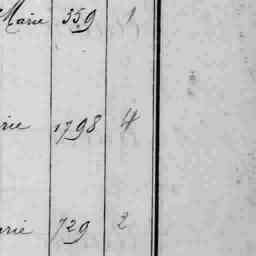 Marie 359 1
rie 1798 4
arie 729 2